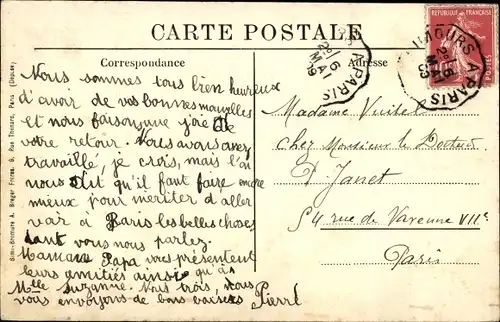 CARTE POSTALE
Correspondance
Nous sommes tous bien heureux
d'avoir de vos bonnes nouvelles
et nous faisons une joie de
votre retour. Nous avons assez
travaillé, je crois, mais l'a
nous dit qu'il faut faire encore
mieux pour mériter d'aller
voir à Paris les belles choses
dont vous nous parlez.
Maman Papa vous présentent
leurs amitiés ainsi qu'à
Mlle Suzanne. Nous trois, nous
vous envoyons de bons baisers Pierre
Adresse
Madame
Chez Monsieur le Docteur
P. Janet
54 rue de Varenne VIIe
Paris
REPUBLIQUE FRANÇAISE
LIMOURS A PARIS
2° 6
MAI
09
A PARIS
2° 6
MAI
Simi-Bromure A. Breger Frères, 9, Rue Thénard, Paris